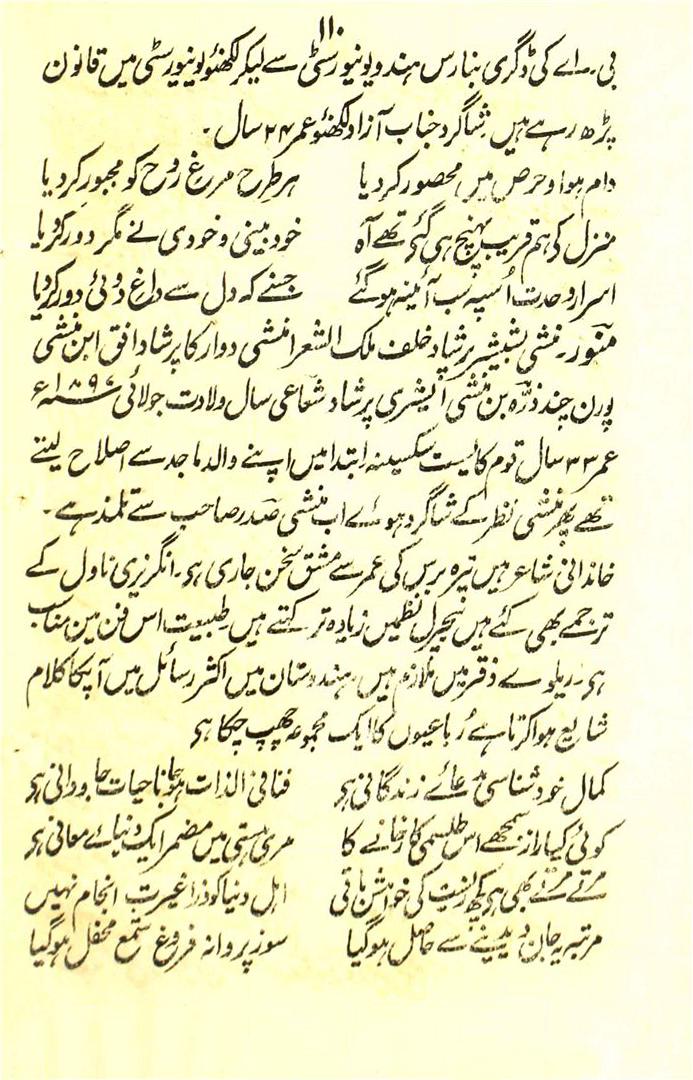 ۱۱۰
بی۔ اے کی ڈگری بنارس ہندو یونیورسٹی سے لیکر لکھنؤ یونیورسٹی میں قانون
پڑھ رہے ہیں شاگرد جناب آزاد لکھنؤ عمر ۲۴ سال۔
دام ہوا و حرص میں محصور کر دیا ہر طرح مرغ روح کو مجبور کر دیا
منزل کی ہم قریب پہنچ ہی گئی تھے آہ خود بینی و خودی نے مگر دور کر دیا
اسرار وحدت اُسپہ سب آئینہ ہو گئے جسنے کہ دل سے داغ دوئی دور کر دیا
منّور۔ منشی بشیشر پرشاد خلف ملک الشعرا منشی دوارکا پرشاد افق ابن منشی
پورن چند ذرّہ بن منشی ایشری پرشاد شعاعی سال ولادت جولائی ۱۸۹۷ء
عمر ۳۳ سال قوم کایست سکسینہ ابتدا میں اپنے والد ماجد سے اصلاح لیتے
تھے پھر منشی نظر کے شاگرد ہوئے اب منشی صدر صاحب سے تلمذ ہے۔
خاندانی شاعر ہیں تیرہ برس کی عمر سے مشق سخن جاری ہی۔ انگریزی ناول کے
ترجمے بھی کئے ہیں نیچرل نظمیں زیادہ تر کہتے ہیں۔ طبیعت اس فن مین مناسب
ہی۔ ریلوے دفتر میں ملازم ہیں۔ ہندوستان میں اکثر رسائل میں آپکا کلام
شایع ہوا کرتا ہے رُباعیوں کا ایک مجموعہ چھپ چکا ہی
کمال خود شناسی مدعائے زندگانی ہی فنا فی الذات ہو جانا حیات جاودانی ہی
کوئی کیا راز سمجھے اس طلسمی کارخانے کا مری ہستی میں مضمر ایک دنیائے معانی ہی
مرتے مرتے بھی ہی کچھ زیست کی خواہش باقی اہل دنیا کو ذرا غیرت انجام نہیں
مرتبہ یہ جان دیدینے سے حاصل ہو گیا سوز پروانہ فروغ شمع محفل ہو گیا